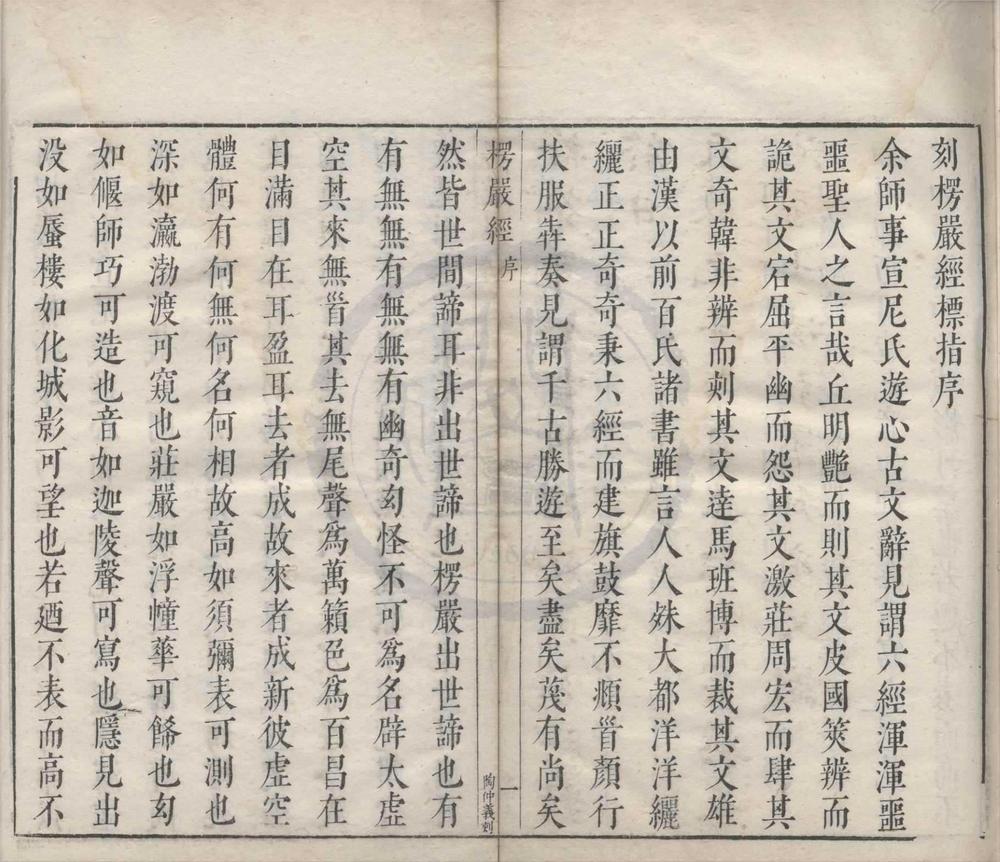 刻楞嚴經標指序
余師事宣尼氏遊心古文辭見謂六經渾渾噩
噩聖人之言哉丘明艷而則其文皮國筴辨而
詭其文宕屈平幽而怨其文激莊周宏而肆其
文奇韓非辨而刺其文達馬班博而裁其文雄
由漢以前百氏諸書雖言人人殊大都洋洋纚
纚正正奇奇秉六經而建旗鼓靡不頫首顏行
扶服犇奏見謂千古勝遊至矣盡矣蔑有尚矣
楞嚴經 序 一 陶仲義刻
然皆世間諦耳非出世諦也楞嚴出世諦也有
有無無有無無有幽奇幻怪不可為名辟太虛
空其來無首其去無尾聲為萬籟色為百昌在
目滿目在耳盈耳去者成故來者成新彼虛空
體何有何無何名何相故高如須彌表可測也
深如瀛渤渡可窺也莊嚴如浮幢華可飾也幻
如偃師巧可造也音如迦陵聲可寫也隱見出
没如蜃樓如化城影可望也若廼不表而高不